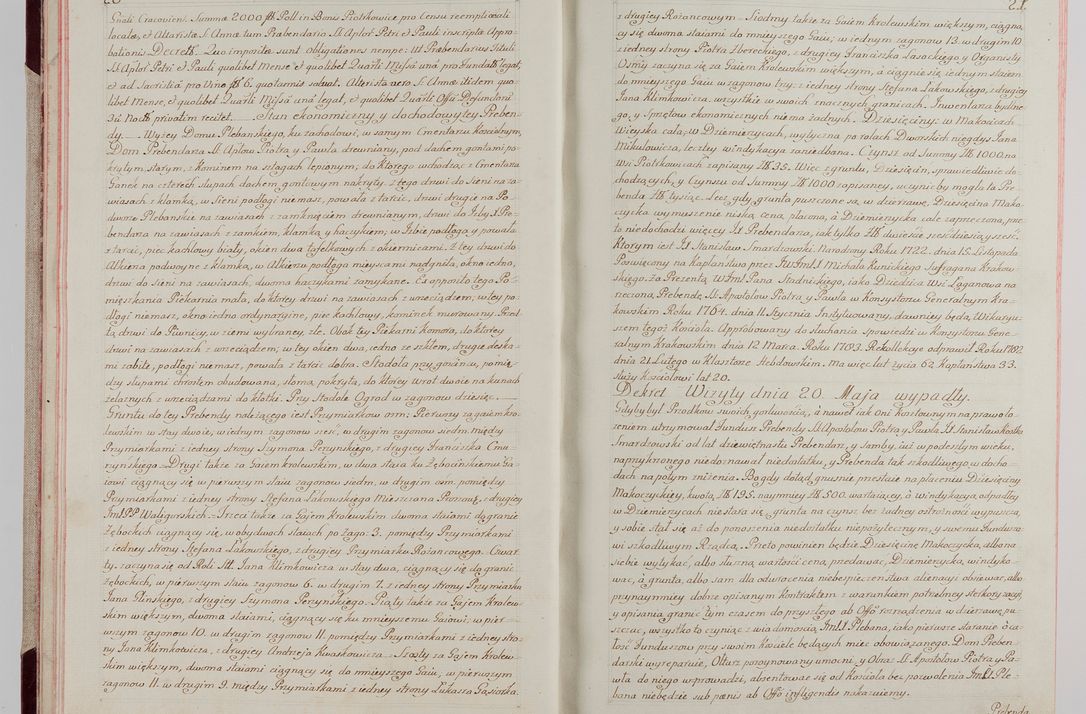 20
Gnali Cracovien. Summæ 2000 fl. Poll. in Bonis Piotrkowice pro Censu reemptionali
locatæ, et Altaristæ S. Annæ tum Præbendario SS. Aplor. Petri et Pauli inscriptæ Appro=
bationis Decretū. Quo impositæ sunt obligationes nempe: ut Præbendarius Tituli
SS. Aplor. Petri et Pauli quolibet Mense et quolibet Quartli Missā unā pro Fundatō. legat,
et ad Sacristiā pro Vino fl. 6. quotannis solvat. Altarista vero S. Annæ itidem quo=
libet Mense, et quolibet Quartli Missā unā legat, et quolibet Quartli Offm. Defunctorū
3ū Noctū. privatim recitet. Stan ekonomiczny y dochodowy tey Preben=
dy. Wyżey Domu Plebanskiego, ku zachodowi, w samym Cmentarzu Kościelnym,
Dom Prebendarza SS. Apłow Piotra y Pawła drewniany, pod dachem gontami po=
krytym starym, z Kominem na szlagach lepionym; do ktorego wchodząc z Cmentarza
Ganek na czterech słupach dachem gontowym nakryty. Z tego drzwi do Sieni na za=
wiasach z klamką, w Sieni podłogi nie masz, powała z tarcic, drzwi drugie na Po=
dworze Plebanskie na zawiasach z zamknięciem drewnianym, drzwi do Izby X. Pre=
bendarza na zawiasach z zamkiem, klamką y haczykiem; w Izbie podłoga y powała
z tarcic, piec kachlowy biały, okien dwa tafelkowych z okiennicami. Z tey drzwi do
Alkierza podwoyne z klamką, w Alkierzu podłoga mieyscami nadgniła, okno iedno,
drzwi do sieni na zawiasach, dwoma haczykami zamykane. Ex opposito tego Po=
mięszkania Piekarnia mała, do ktorey drzwi na zawiasach z wrzeciądzem, w tey po=
dłogi niemasz, okno iedno ordynaryine, piec kachlowy, kominek murowany. Przed
tą drzwi do Piwnicy, w ziemi wybraney, złe. Obok tey Piekarni Komora, do ktorey
drzwi na zawiasach z wrzeciądzem; w tey okien dwa, iedno ze szkłem, drugie deska=
mi zabite, podłogi nie masz, powała z tarcic dobra. Stodoła przy gminiu, pomię=
dzy słupami chrostem obudowana, słomą pokryta, do ktorey wrot dwoie na kunach
żelaznych z wrzeciądzami do kłotki. Przy Stodole Ogrod w zagonow dziesięć.
Gruntu do tey Prebendy należącego iest Przymiarkow ośm: Pierwszy za gaiem kro=
lewskim w stay dwoie, w iednym zagonow sześć, w drugim zagonow siedm, między
Przymiarkami z iedney strony Szymona Perzynskiego, z drugiey Franciszka Cmu=
rzynskiego. Drugi także za Gaiem krolewskim, w dwa staia ku Zębocinskiemu Ga=
iowi ciągnący się w pierwszym staiu zagonow siedm, w drugim ośm, pomiędzy
Przymiarkami z iedney strony Stefana Lukowskiego Mieszczana Proszow. z drugiey
Jm. PP. Waligurskich. Trzeci także za Gajem krolewskim dwoma staiami do granic
Zębockich ciągnący się, w obydwoch staiach po zago: 3. pomiędzy Przymiarkami
z iedney strony Stefana Lakowskiego, z drugiey Przymiarku Rożancowego. Czwar=
ty, zaczyna się od Roli Mt. Jana Klimkowicza w stay dwa, ciągnący się do granic
Zębockich, w pierwszym staiu zagonow 6. w drugim 7. z iedney strony Przymiarku
Jana Plinskiego, z drugiey Szymona Perzynskiego. Piąty także za Gajem Krolew=
skim większym, dwoma staiami, ciągnący się ku mnieyszemu Gaiowi, w pier=
wszym zagonow 10. w drugim zagonow 11. pomiędzy Przymiarkami z iedney stro=
ny Jana Klimkowicza, z drugiey Andrzeja Kwaskowicza. Szosty za Gajem Krolew=
skim większym, dwoma staiami ciągnący się do mnieyszego Gaiu, w pierwszym
zagonow 11. w drugim 9. między Przymiarkami z iedney strony Łukasza Gąsiorka,
21.
z drugiey Rożancowym. Siodmy także za Gaiem Krolewskim większym, ciągną=
cy się dwoma staiami do mnieyszego Gaiu; w iednym zagonow 13. w drugim 10
z iedney strony Piotra Zbereckiego, z drugiey Franciszka Lasockiego y Organisty
Osmy zaczyna się za Gaiem Krolewskim większym, a ciągnie się iednym staiem
do mnieyszego Gaiu w zagonow trzy: z iedney strony Stefana Lakowskiego, z drugiey
Jana Klimkowicza, wszystkie w swoich znacznych granicach. Inwentarza bydlne=
go, y Sprzętow ekonomicznych niema żadnych. Dziesięciny: w Makocicach
Wieyska cała; w Dziemierzycach, wytyczna po rolach Dworskich niegdys Jana
Mikułowicza, lecz ty windykacya zaniedbana. Czynsz od Summy Zł. 1000. na
Wsi Piotrkowicach zapisaney Zł. 35. Więc z gruntu, Dziesięcin, sprawiedliwie do=
chodzących, y Czynszu od Summy Zł. 1000 zapisaney, uczynić by mogła ta Pre=
benda Zł. tysiąc. Lecz, gdy grunta puszczone są, w dzierżawę, Dziesięcina Mako=
czycka wymuszenie niską ceną płacona, à Dziemierzycka cale zaprzeczona, prze=
to niedochodzi więcey X. Prebendarza, iak tylko Zł. dwieście sześćdziesiąt y sześć.
Ktorym iest X. Stanisław Smardzowski. Narodzony Roku 1722. dnia 15. Listopada
Poswięcony na Kapłanstwo przez JW. Jm. X. Michała Kunickiego Suffragana Krakow=
skiego, za Prezentą W. Jm. Pana Stadnickiego, iako Dziedzica Wsi Łaganowa na
rzeczoną Prebendę SS. Apostołow Piotra y Pawła w Konsystorzu Generalnym Kra=
kowskim Roku 1764. dnia 11. Stycznia Instytuowany; dawniey będąc Wikaryu=
szem tegoż Kościoła. Approbowany do słuchania spowiedzi w Konsystorzu Gene=
ralnym Krakowskim dnia 12 Marca Roku 1783. Rekollekcye odprawił Roku 1782
dnia 21. Lutego w Klasztorze Hebdowskim. Ma więc lat życia 62. Kapłanstwa 33.
służy Kościołowi lat 20.
Dekret Wizyty dnia 20. Maja wypadły.
Gdyby był Przodkow swoich gorliwością, à nawet iak oni kosztownym na prawo ło=
żeniem utrzymował Fundusz Prebendy SS. Apostołow Piotra y Pawła, X. Stanisław Kostka
Smardzowski od lat dziewiętnastu Prebendarz, y samby, iuż w podeszłym wieku,
naprzykronego niedoznawał niedostatku, y Prebenda tak szkodliwego w docho=
dach na potym zniżenia. Bo gdy dotąd, gnusnie przestaie na płaceniu Dziesięciny
Makoczyckiey, kwotą Zł. 195. naymniey Zł. 500. wartaiącey, à Windykacyą odpadłey
w Dziemierzycach nie stara się, grunta na czynsz bez żadney ostrożności wypuszcza,
y sobie stał się aż do ponoszenia niedostatku niepożytecznym, y swemu Fundusza=
wi szkodliwym Rządcą. Przeto powinien będzie Dziesięcinę Makoczycką, albo na
siebie wytykać, albo słuszną wartości ceną przedawać, Dziemierzycką, windyko=
wać, à grunta, albo sam dla odwrocenia niebezpieczenstwa alienacyi obsiewać, albo
przynaymniey dobrze opisanym Kontraktem z warunkiem potrzebney sterkoryzacyi
y opisania granic tym czasem do przyszłego ab Offo. rozrządzenia w dzierżawę pu=
szczac, wszystko to czyniąc z wiadomością Jm. X. Plebana, iako pierwsze staranie o ca=
łość Funduszow przy swoim Kościele będących miec obowiązanego. Dom Preben=
darski wyreparuie, Ołtarz porozynowany umocni, y Obraz SS. Apostołow Piotra y Pa=
wła do niego wprowadzi, absentowac się od Kościoła bez pozwolenia Jm. X. Ple=
bana niebędzie sub pœnis ab Offo infligendis nakazuiemy.
Prebenda